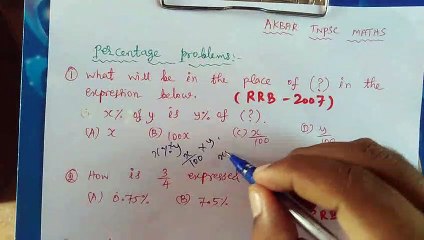 AKBAR TNPSC MATHS
Percentage problems:-
① What will be in the place of (?) in the
expression below. (RRB-2007)
x% of y is y% of (?).
(A) x (B) 100x (C) x/100 (D) y/100
x/100 × y
② How is 3/4 expressed
(A) 0.75% (B) 7.5%